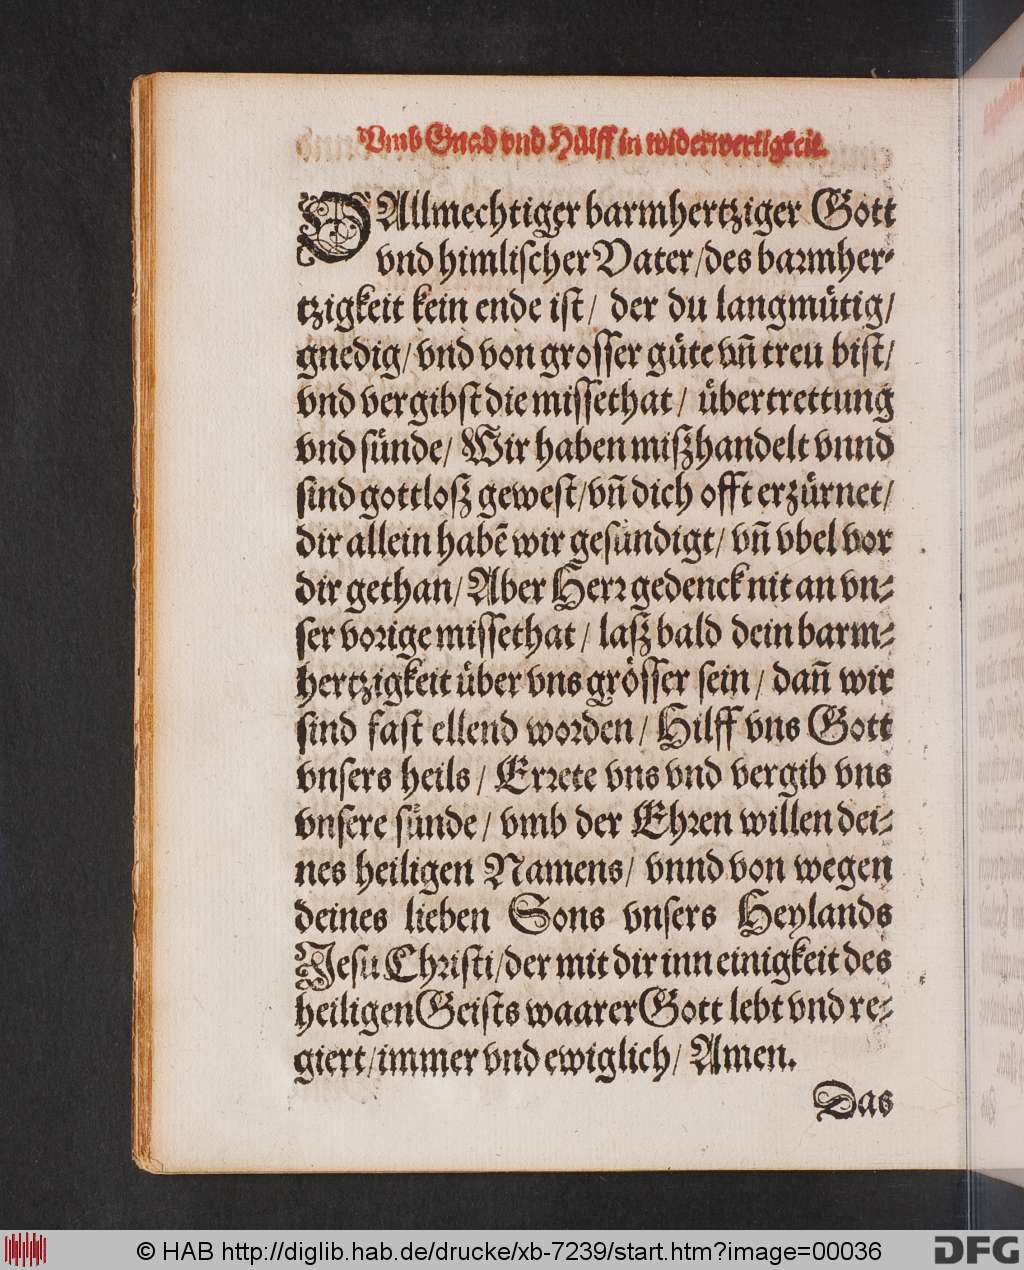 Vmb Gnad vnd Hülff in widerwertigkeit.
O Allmechtiger barmhertziger Gott
vnd himlischer Vater/des barmher-
tzigkeit kein ende ist/ der du langmütig/
gnedig/ vnd von grosser güte vñ treu bist/
vnd vergibst die missethat/ übertrettung
vnd sünde/ Wir haben mißhandelt vnnd
sind gottloß gewest/vñ dich offt erzürnet/
dir allein habẽ wir gesündigt/ vñ vbel vor
dir gethan/ Aber Herr gedenck nit an vn-
ser vorige missethat/ laß bald dein barm-
hertzigkeit über vns grösser sein/ dañ wir
sind fast ellend worden/ Hilff vns Gott
vnsers heils/ Errete vns vnd vergib vns
vnsere sünde/ vmb der Ehren willen dei-
nes heiligen Namens/ vnnd von wegen
deines lieben Sons vnsers Heylands
Jesu Christi/der mit dir inn einigkeit des
heiligen Geists waarer Gott lebt vnd re-
giert/immer vnd ewiglich/ Amen.
Das
© HAB http://diglib.hab.de/drucke/xb-7239/start.htm?image=00036
DFG